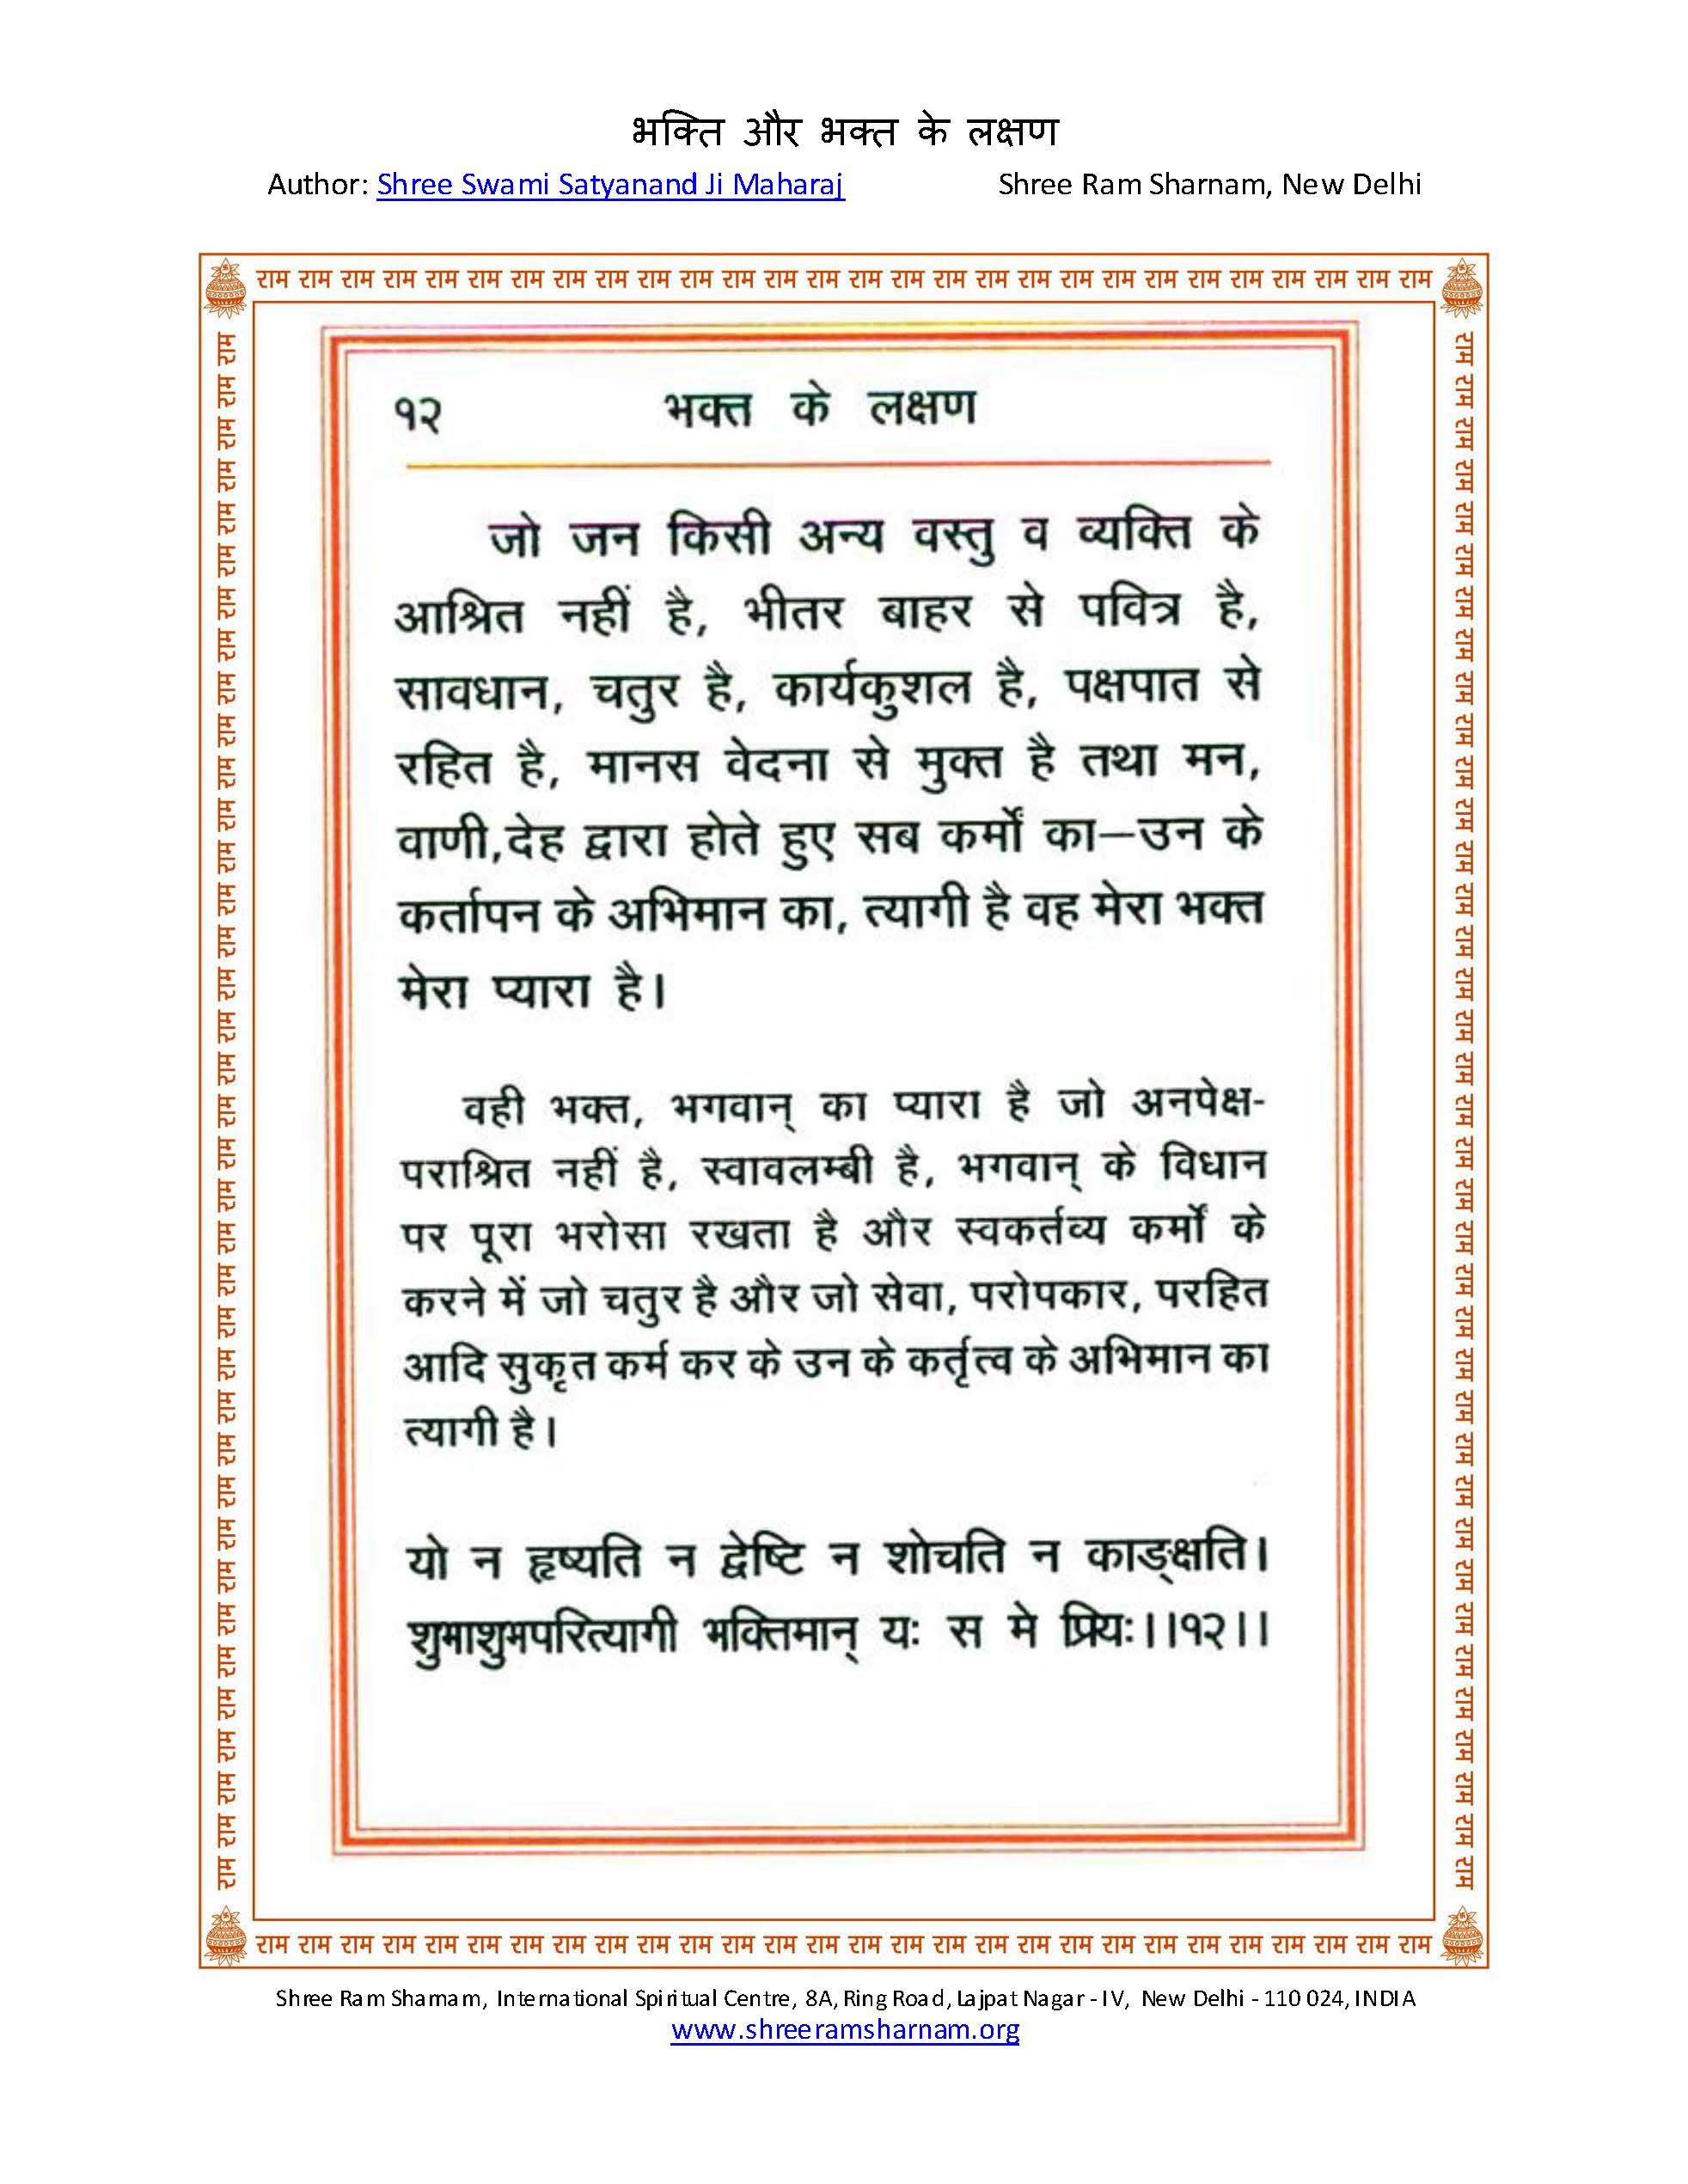 भक्ति और भक्त के लक्षण
Author: Shree Swami Satyanand Ji Maharaj Shree Ram Sharnam, New Delhi
राम राम राम राम राम राम राम राम राम राम राम राम राम राम राम राम राम राम राम राम राम राम राम राम राम राम राम राम
१२ भक्त के लक्षण
जो जन किसी अन्य वस्तु व व्यक्ति के
आश्रित नहीं है, भीतर बाहर से पवित्र है,
सावधान, चतुर है, कार्यकुशल है, पक्षपात से
रहित है, मानस वेदना से मुक्त है तथा मन,
वाणी,देह द्वारा होते हुए सब कर्मों का—उन के
कर्तापन के अभिमान का, त्यागी है वह मेरा भक्त
मेरा प्यारा है।
वही भक्त, भगवान् का प्यारा है जो अनपेक्ष-
पराश्रित नहीं है, स्वावलम्बी है, भगवान् के विधान
पर पूरा भरोसा रखता है और स्वकर्तव्य कर्मों के
करने में जो चतुर है और जो सेवा, परोपकार, परहित
आदि सुकृत कर्म कर के उन के कर्तृत्व के अभिमान का
त्यागी है।
यो न हृष्यति न द्वेष्टि न शोचति न काङ्क्षति।
शुभाशुभपरित्यागी भक्तिमान् यः स मे प्रियः।।१२।।
राम राम राम राम राम राम राम राम राम राम राम राम राम राम राम राम राम राम राम राम राम राम राम राम राम राम राम राम
राम राम राम राम राम राम राम राम राम राम राम राम राम राम राम राम राम राम राम राम राम राम राम राम राम राम राम राम राम राम राम राम राम राम राम राम राम
राम राम राम राम राम राम राम राम राम राम राम राम राम राम राम राम राम राम राम राम राम राम राम राम राम राम राम राम राम राम राम राम राम राम राम राम राम
Shree Ram Sharnam, International Spiritual Centre, 8A, Ring Road, Lajpat Nagar - IV, New Delhi - 110 024, INDIA
www.shreeramsharnam.org